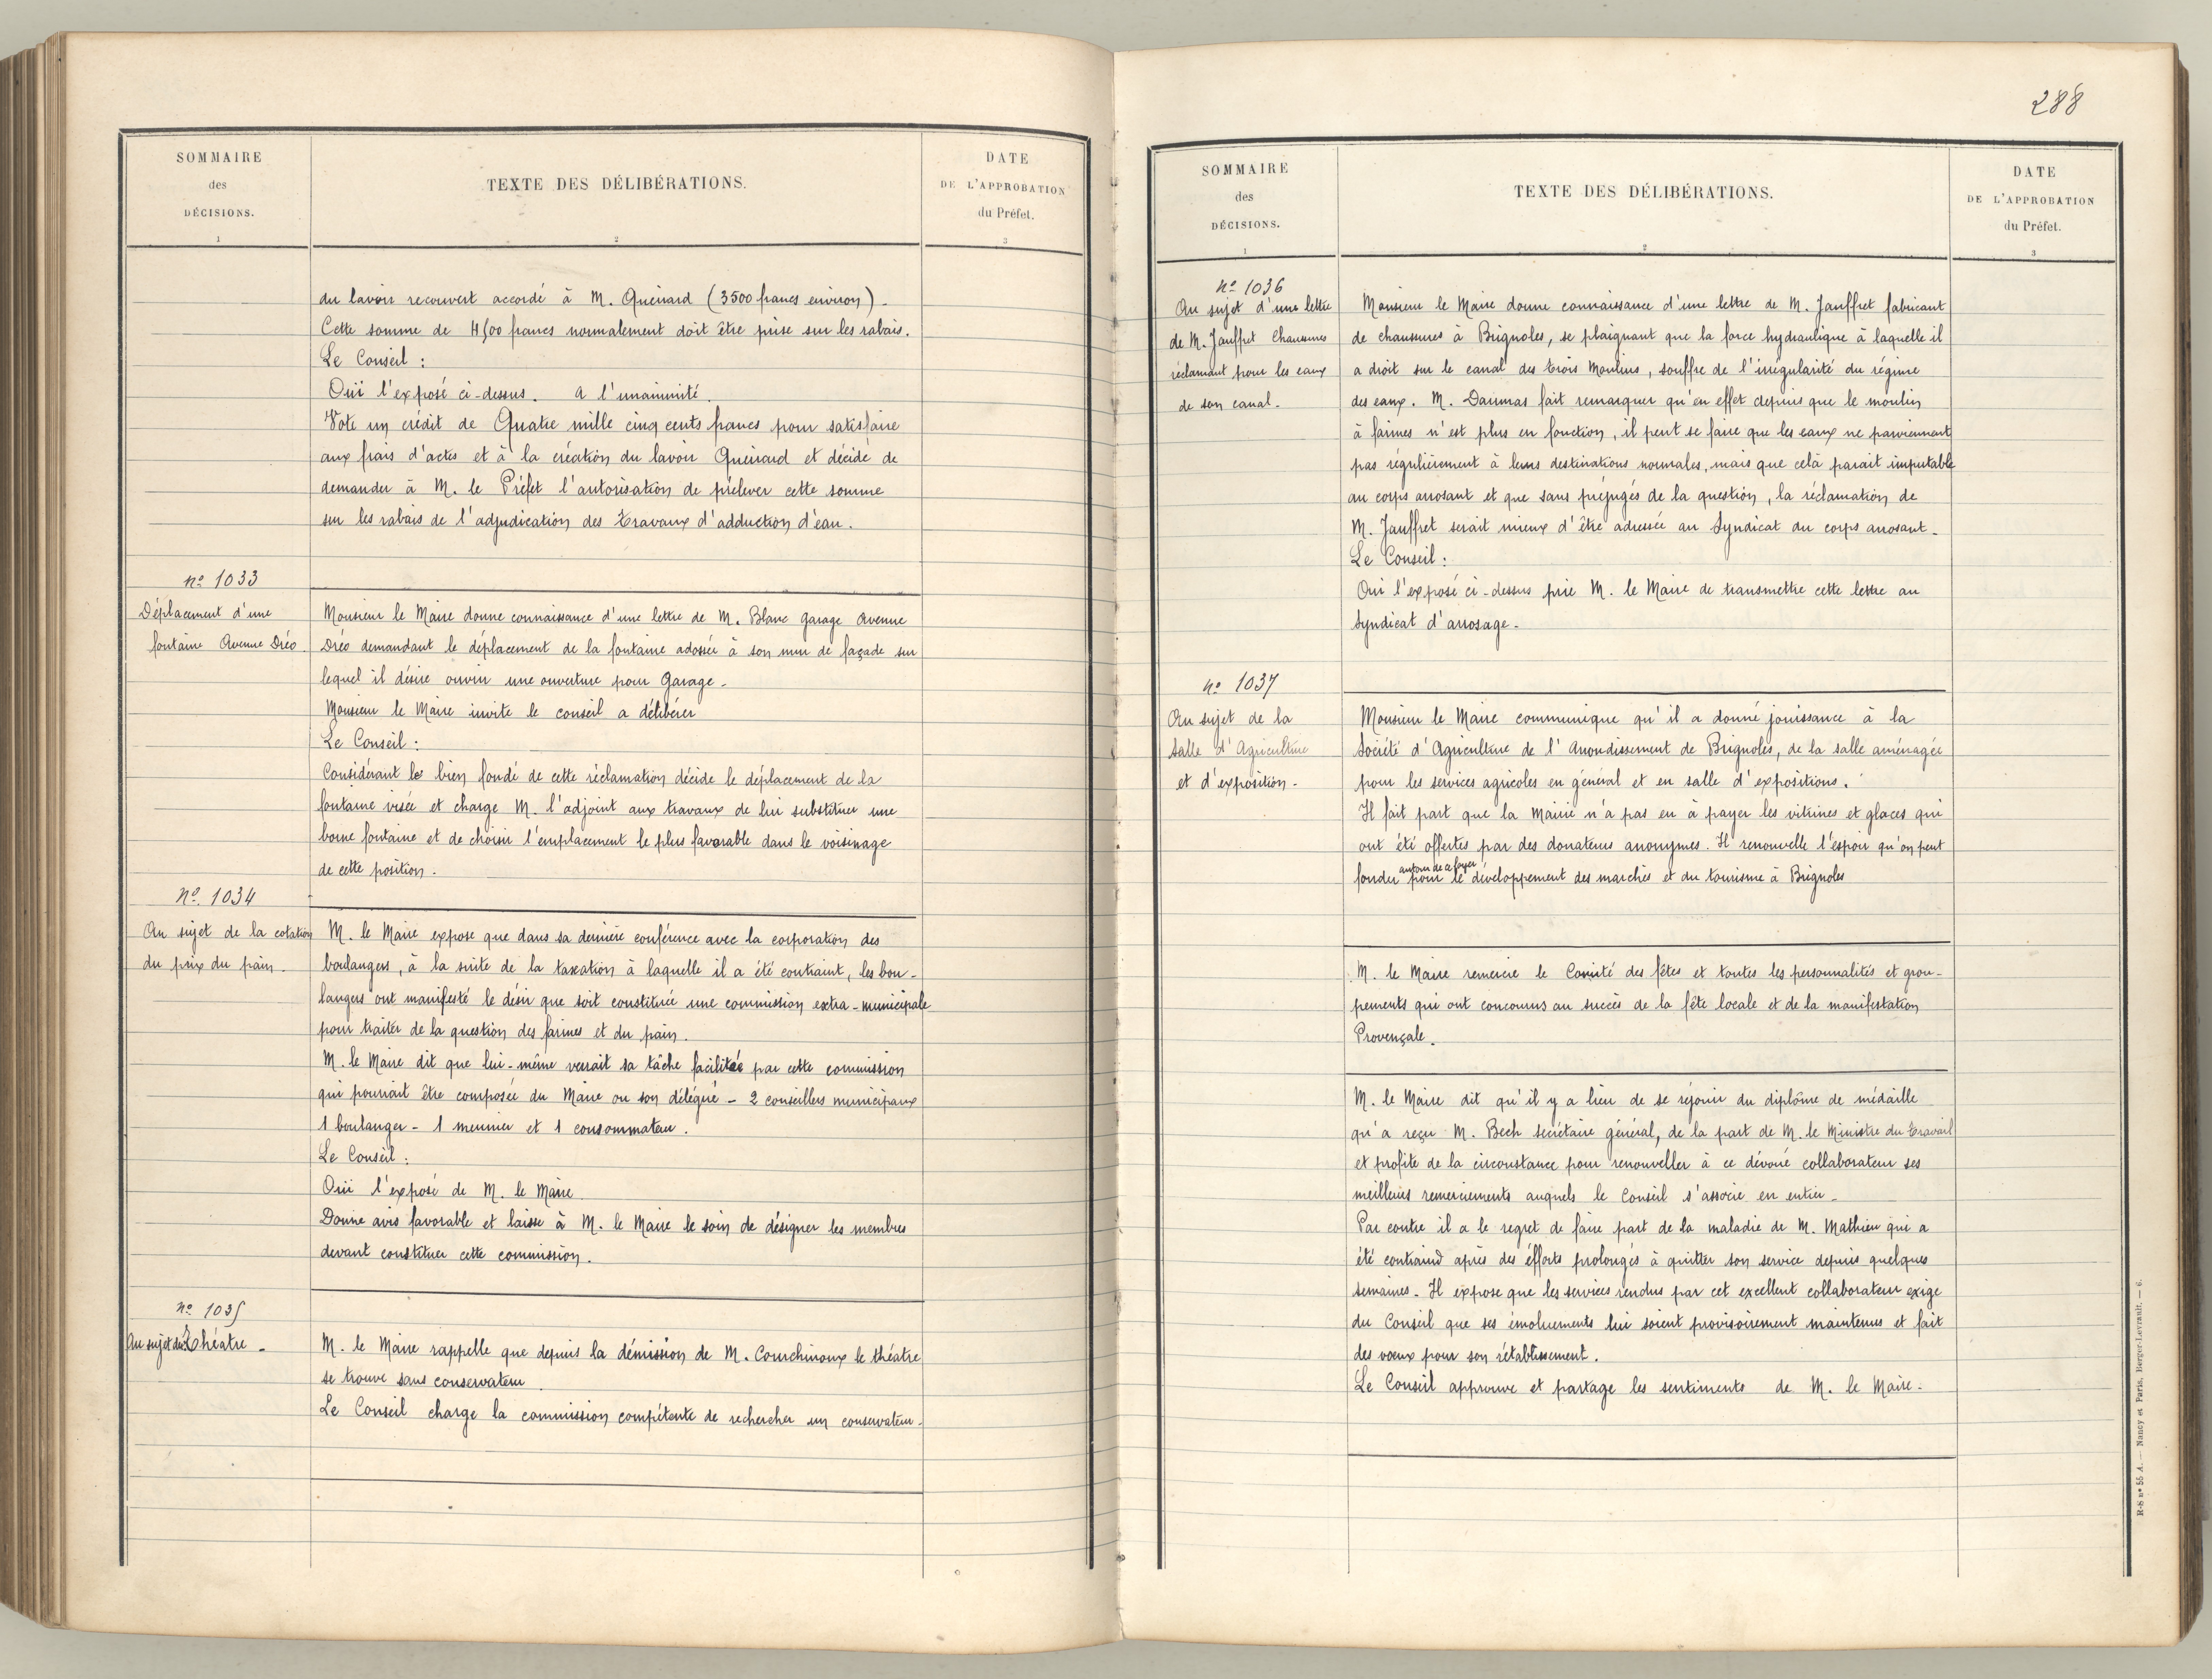 SOMMAIRE
des
DÉCISIONS.
1
TEXTE DES DÉLIBÉRATIONS.
2
DATE
DE L'APPROBATION
du Préfet.
3
du lavoir recouvert accordé à M. Queirard (3500 francs environ) -
Cette somme de 4500 francs normalement doit être prise sur les rabais.
Le Conseil :
Ouï l'exposé ci-dessus. A l'unanimité.
Vote un crédit de Quatre mille cinq cents francs pour satisfaire
aux frais d'actes et à la création du lavoir Queirard et décide de
demander à M. le Préfet l'autorisation de prélever cette somme
sur les rabais de l'adjudication des travaux d'adduction d'eau.
nº 1033
Déplacement d'une
fontaine Avenue Dréo.
Monsieur le Maire donne connaissance d'une lettre de M. Blanc Garage Avenue
Dréo demandant le déplacement de la fontaine adossée à son mur de façade sur
lequel il désire ouvrir une ouverture pour Garage -
Monsieur le Maire invite le conseil a délibérer
Le Conseil :
Considérant le bien fondé de cette réclamation décide le déplacement de la
fontaine visée et charge M. l'adjoint aux travaux de lui substituer une
borne fontaine et de choisir l'emplacement le plus favorable dans le voisinage
de cette position.
Nº 1034
Au sujet de la cotation
du prix du pain -
M. le Maire expose que dans sa dernière conférence avec la corporation des
boulangers, à la suite de la taxation à laquelle il a été contraint, les bou-
langers ont manifesté le désir que soit constituée une commission extra-municipale
pour traiter de la question des farines et du pain.
M. le Maire dit que lui-même verrait sa tâche facilitée par cette commission
qui pourrait être composée du Maire ou son délégué - 2 conseillers municipaux
1 boulanger - 1 meunier et 1 consommateur.
Le Conseil :
Ouï l'exposé de M. le Maire
Donne avis favorable et laisse à M. le Maire le soin de désigner les membres
devant constituer cette commission.
nº 1035
Au sujet du Théatre -
M. le Maire rappelle que depuis la démission de M. Courchinoux le théatre
se trouve sans conservateur.
Le Conseil charge la commission compétente de rechercher un conservateur -
288
SOMMAIRE
des
DÉCISIONS.
1
TEXTE DES DÉLIBÉRATIONS.
2
DATE
DE L'APPROBATION
du Préfet.
3
nº 1036
Au sujet d'une lettre
de M. Jauffret Chaussures
réclamant pour les eaux
de son canal -
Monsieur le Maire donne connaissance d'une lettre de M. Jauffret fabricant
de chaussures à Brignoles, se plaignant que la force hydraulique à laquelle il
a droit sur le canal des trois Moulins, souffre de l'irrégularité du régime
des eaux. M. Daumas fait remarquer qu'en effet depuis que le moulin
à farines n'est plus en fonction, il peut se faire que les eaux ne parviennent
pas régulièrement à leurs destinations normales, mais que celà parait imputable
au corps arrosant et que sans préjugés de la question, la réclamation de
M. Jauffret serait mieux d'être adressée au Syndicat du corps arrosant -
Le Conseil :
Ouï l'exposé ci-dessus prie M. le Maire de transmettre cette lettre au
Syndicat d'arrosage -
nº 1037
Au sujet de la
Salle d'Agriculture
et d'exposition -
Monsieur le Maire communique qu'il a donné jouissance à la
Société d'Agriculture de l'Arrondissement de Brignoles, de la salle aménagée
pour les services agricoles en général et en salle d'expositions.
Il fait part que la Mairie n'a pas eu à payer les vitrines et glaces qui
ont été offertes par des donateurs anonymes. Il renouvelle l'espoir qu'on peut
autour de ce foyer
fonder pour le développement des marchés et du tourisme à Brignoles
M. le Maire remercie le Comité des fêtes et toutes les personnalités et grou-
pements qui ont concourus au succès de la fête locale et de la manifestation
Provençale.
M. le Maire dit qu'il y a lieu de se réjouir du diplôme de médaille
qu'a reçu M. Bech secrétaire général, de la part de M. le Ministre du travail
et profite de la circonstance pour renouveller à ce dévoué collaborateur ses
meilleurs remerciements auquels le Conseil s'associe en entier -
Par contre il a le regret de faire part de la maladie de M. Mathieu qui a
été contraind après des éfforts prolongés à quitter son service depuis quelques
semaines - Il expose que les services rendus par cet excellent collaborateur exige
du Conseil que ses émoluements lui soient provisoirement maintenus et fait
des vœux pour son rétablissement.
Le Conseil approuve et partage les sentiments de M. le Maire -
R-S nº 55 A. — Nancy et Paris, Berger-Levrault. — 6.